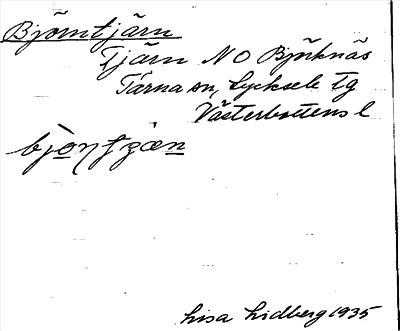 Björntjärn
Tjärn N O Björknäs
Tärna sn, Lycksele tg
Västerbottens l
Lisa Lidberg 1935